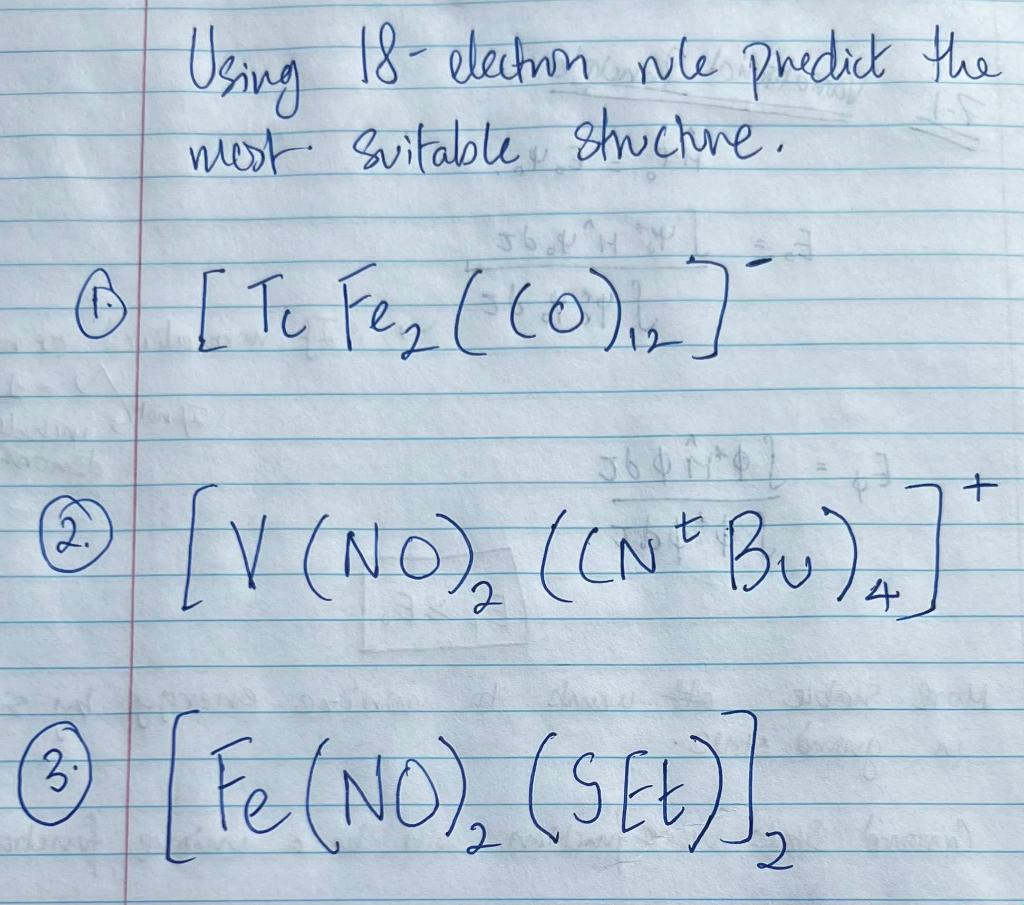 Using 18-electron rule predict the
most suitable structure.
1. [Tc Fe₂ (CO)₁₂]⁻
2. [V (NO)₂ (CNᵗBu)₄]⁺
3. [Fe (NO)₂ (SEt)]₂